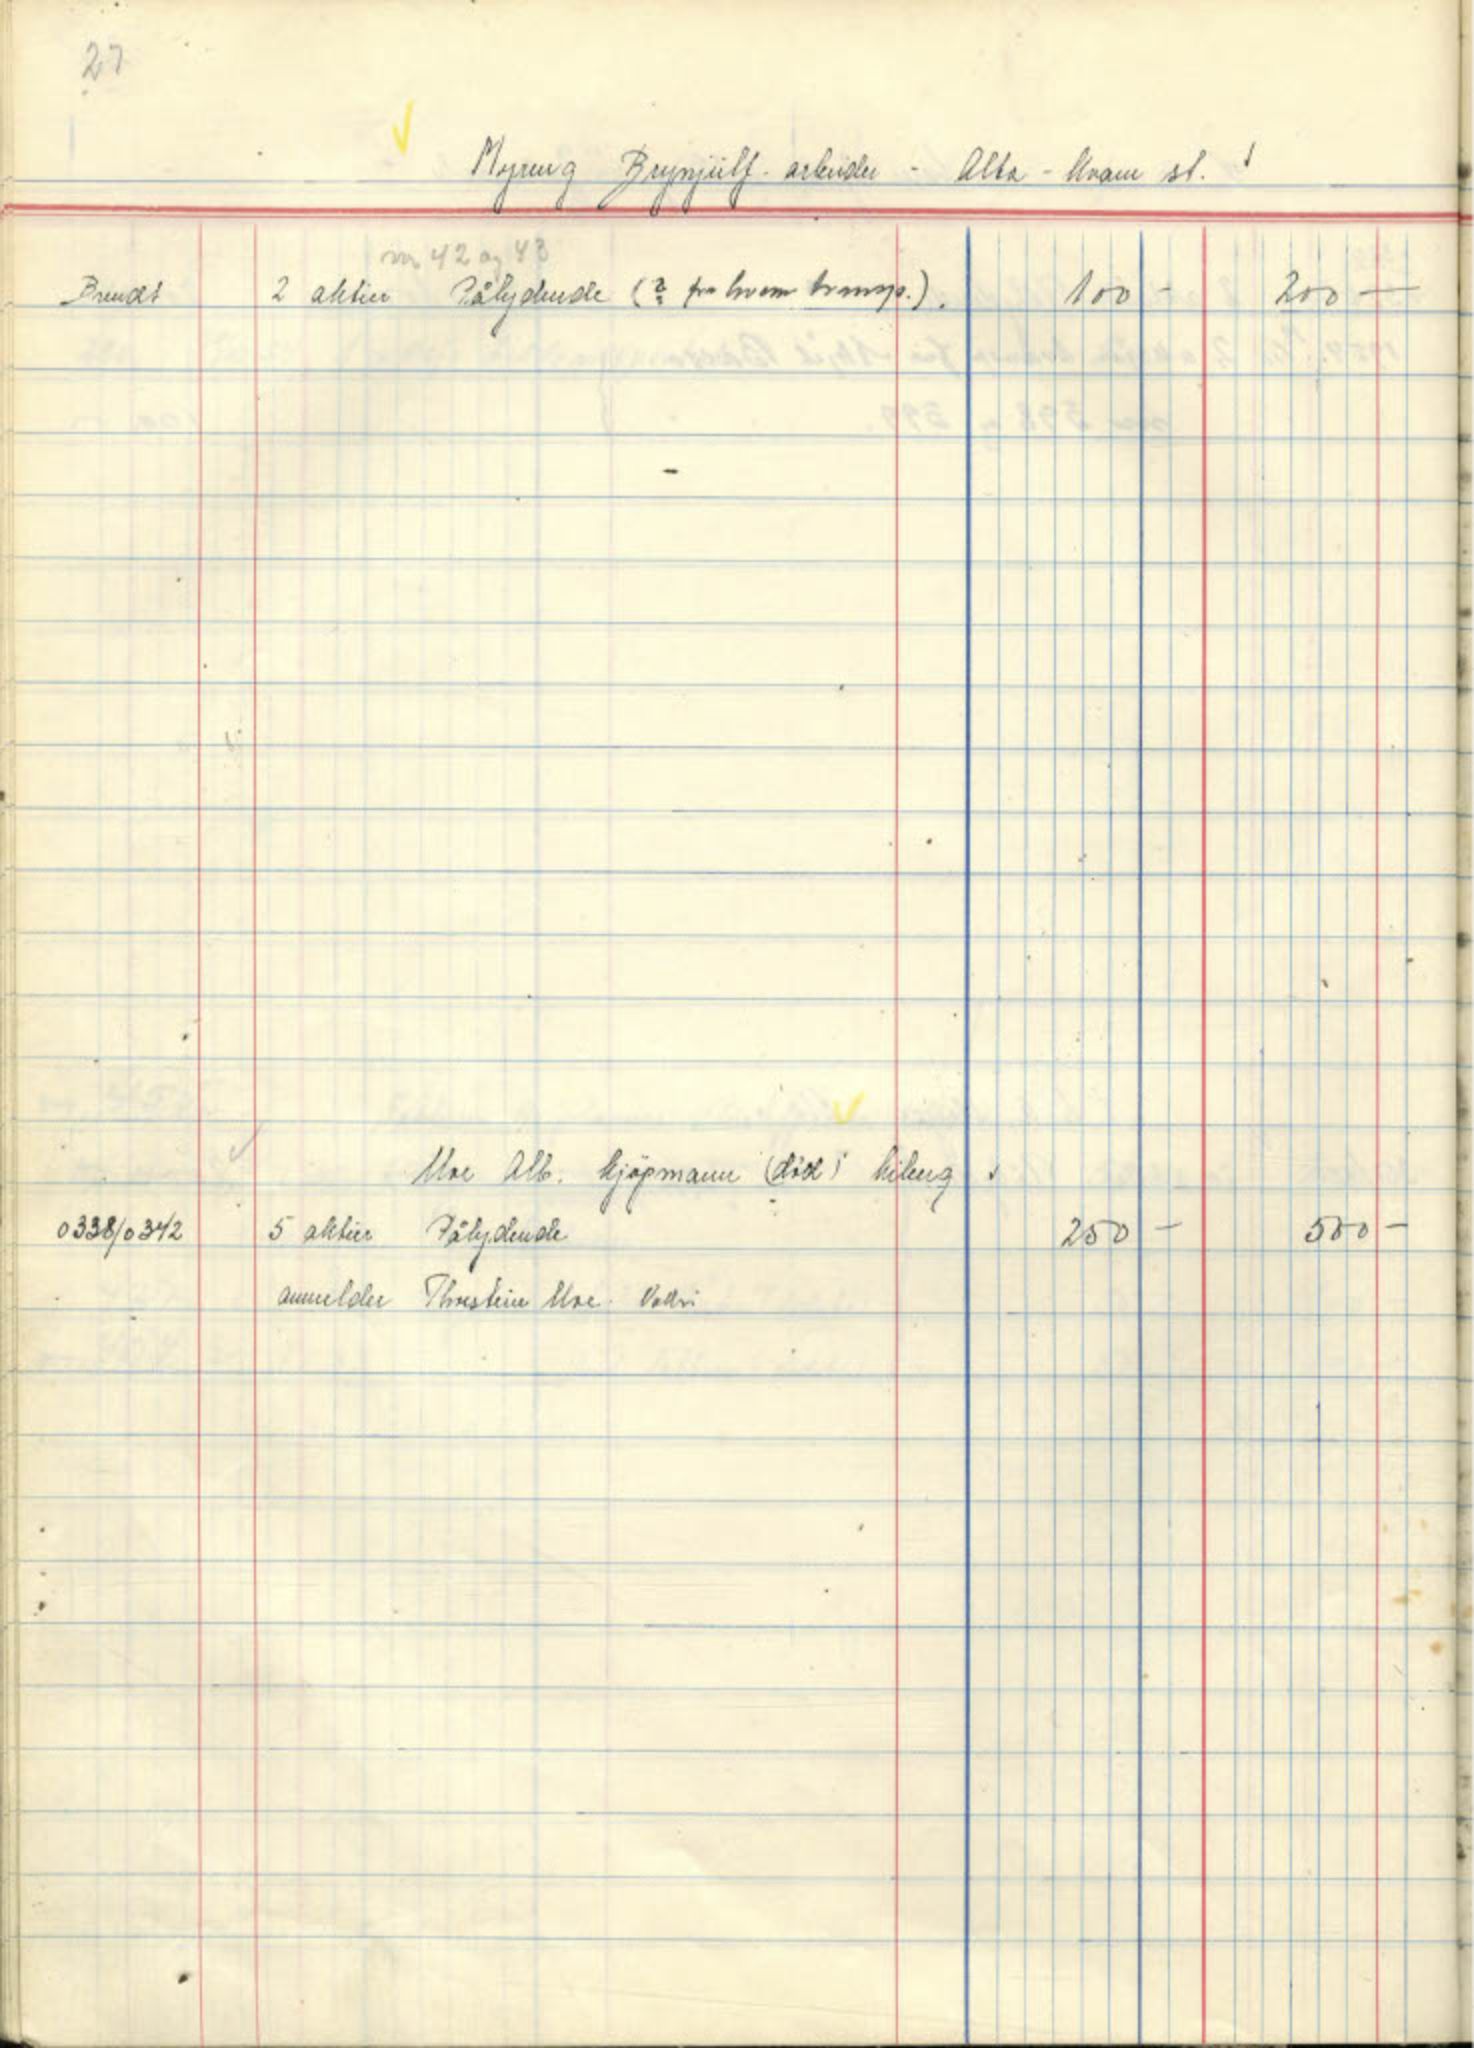 27
Myreng Brynjulf. arbeider - Alta - Kvam st.
nr 42 og 43
Brendt 2 aktier Pålydende (? fra hvem transp.). 100 - 200 -
Moe Alb. Kjöpmann (död)
0338/0342 5 aktier Pålydende 250 - 500 -
anmelder Thorstein Moe.